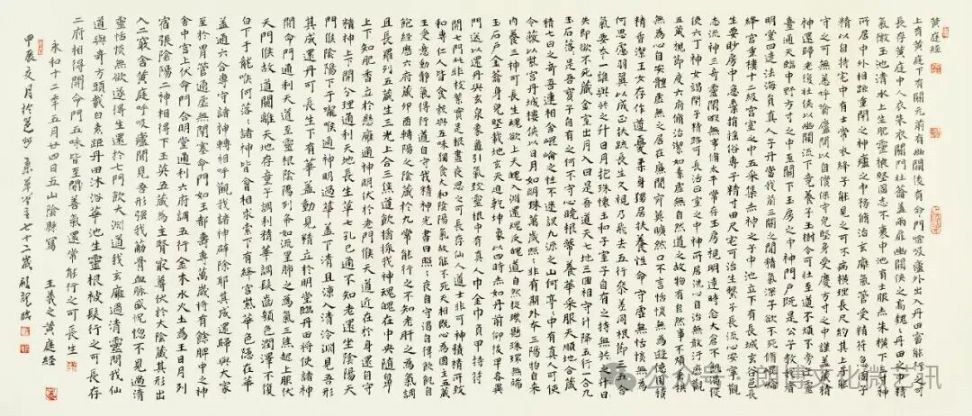 黄庭經
上有黄庭下有關元前有幽闕後有命門噓吸廬外出入丹田審能行之可
長存黄庭中人衣朱衣關門壯籥蓋兩扉幽闕俠之高魏魏丹田之中精
氣微玉池清水上生肥靈根堅固志不衰中池有士服赤朱横下三寸神
所居中外相距重閉之神廬之中務脩治玄廱氣管受精符急固子
精以自持宅中有士常衣絳子能見之可不病横理長尺約其上子能
守之可无恙呼噏廬間以自償保守完堅身受慶方寸之中謹蓋藏精
神還歸老復壯俠以幽闕流下竟養子玉樹令可杖至道不煩不旁迕
靈臺通天臨中野方寸之中至關下玉房之中神門户既是公子教我者
明堂四達法海員真人子丹當我前三關之間精氣深子欲不死脩崐崘
絳宫重樓十二級宫室之中五采集赤神之子中池立下有長城玄谷邑長
生要眇房中急棄捐搖俗專子精寸田尺宅可治生繫子長流心安寧觀
志流神三奇靈閒暇無事脩太平常存玉房視明達時念大倉不飢渴役
使六丁神女謁閉子精路可長活正室之中神所居洗心自治無敢汙歷觀
五藏視節度六府脩治潔如素虛無自然道之故物有自然事不煩垂拱
無為心自安體虛無之居在廉間寂莫曠然口不言恬惔無為遊德園積
精香潔玉女存作道憂柔身獨居扶養性命守虛無恬惔無為
何思慮羽翼以成正扶疏長生久視乃飛去五行參差同根節三五合氣
要本一誰與共之升日月抱珠懷玉和子室子自有之持無
失即欲不死藏金室出月入日是吾道天七地三回相守升降五行一合九
玉石落落是吾寶子自有之何不守心曉根蒂養華采服天順地合藏
精七日之奇吾連相合崐崘之性不迷誤九源之山何亭亭中有真人可使
令蔽以紫宫丹城樓俠以日月如明珠萬歲照非有期外本三陽物自來
內養三神可長生魂欲上天魄入淵還魂反魄道自然琁璣懸珠環無端
玉石户金籥身完堅載地玄天迴乾坤象以四時赤如丹前仰後卑各異
門送以還丹與玄泉象龜引氣致靈根中有真人巾金巾負甲持符
開七門此非枝葉實是根晝夜思之可長存仙人道士非可神積精所致
和專仁人皆食穀與五味獨食大和陰陽氣故能不死天相既心為國主五藏
王受意動靜氣得行道自守我精神光晝日照照夜自守渴自得飲飢自
飽經歷六府藏卯酉轉陽之陰藏於九常能行之不知老肝之為氣調
且長羅列五藏生三光上合三焦道飲醬漿我神魂魄在中央隨鼻
上下知肥香立於懸廱通神明伏於老門候天道近在於身還自守
精神上下開分理通利天地長生草七孔已通不知老還坐陰陽天
門候陰陽下于嚨喉通神明過華蓋下清且涼入清泠淵見吾形
其成還丹可長生下有華蓋動見精立於明堂臨丹田將使諸神
開命門通利天道至靈根陰陽列布如流星肺之為氣三焦起上服伏
天門候故道闚離天地存童子調利精華調髮齒顏色潤澤不復
白下于嚨喉何落落諸神皆會相求索下有絳宫紫華色隱在華
蓋通六合專守諸神轉相呼觀我諸神辟除耶其成還歸與大家
至於胃管通虛無閉塞命門如玉都壽專萬歲將有餘脾中之神
舍中宫上伏命門合明堂通利六府調五行金木水火土為王日月列
宿張陰陽二神相得下玉英五藏為主腎最尊伏於大陰藏其形出
入二竅舍黄庭呼吸廬間見吾形强我筋骨血脈盛恍惚不見過清
靈恬惔無欲遂得生還於七門飲大淵道我玄廱過清靈問我仙
道與奇方頭載白素距丹田沐浴華池生靈根被髮行之可長存
二府相得開命門五味皆至開善氣還常能行之可長生
永和十二年五月廿四日五山陰縣寫 王羲之黄庭經
甲辰
公众号·朗博文化微艺讯